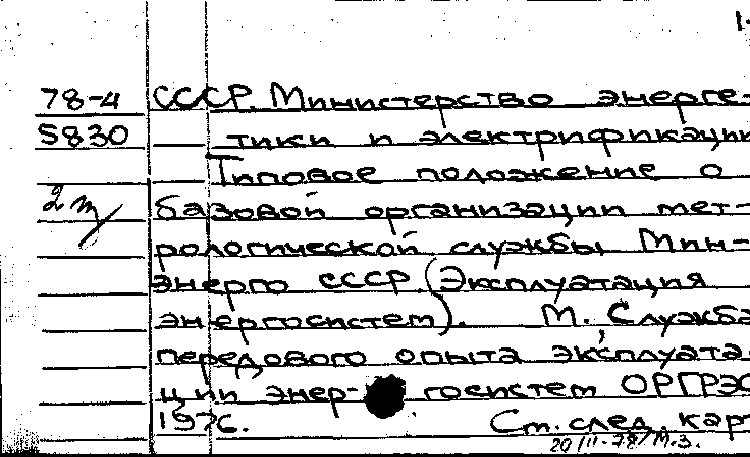 1.
78-4 СССР. Министерство энерге-
5830 тики и электрификации
Типовое положение о
базовой организации мет-
рологической службы Мин-
энерго СССР. (Эксплуатация
энергосистем). М., Служба
передового опыта эксплуата-
ции энер- госистем ОРГРЭС
1976. См. след. кар
20/II-78/М.З.